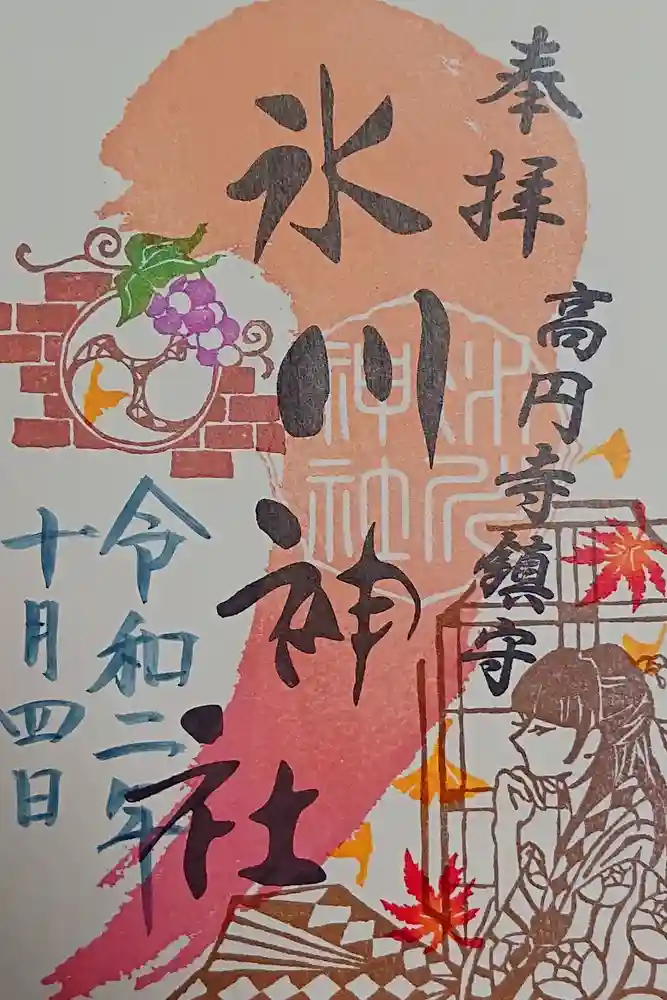 奉拝
高円寺鎮守
氷川神社
氷川
神社
令和二年
十月四日